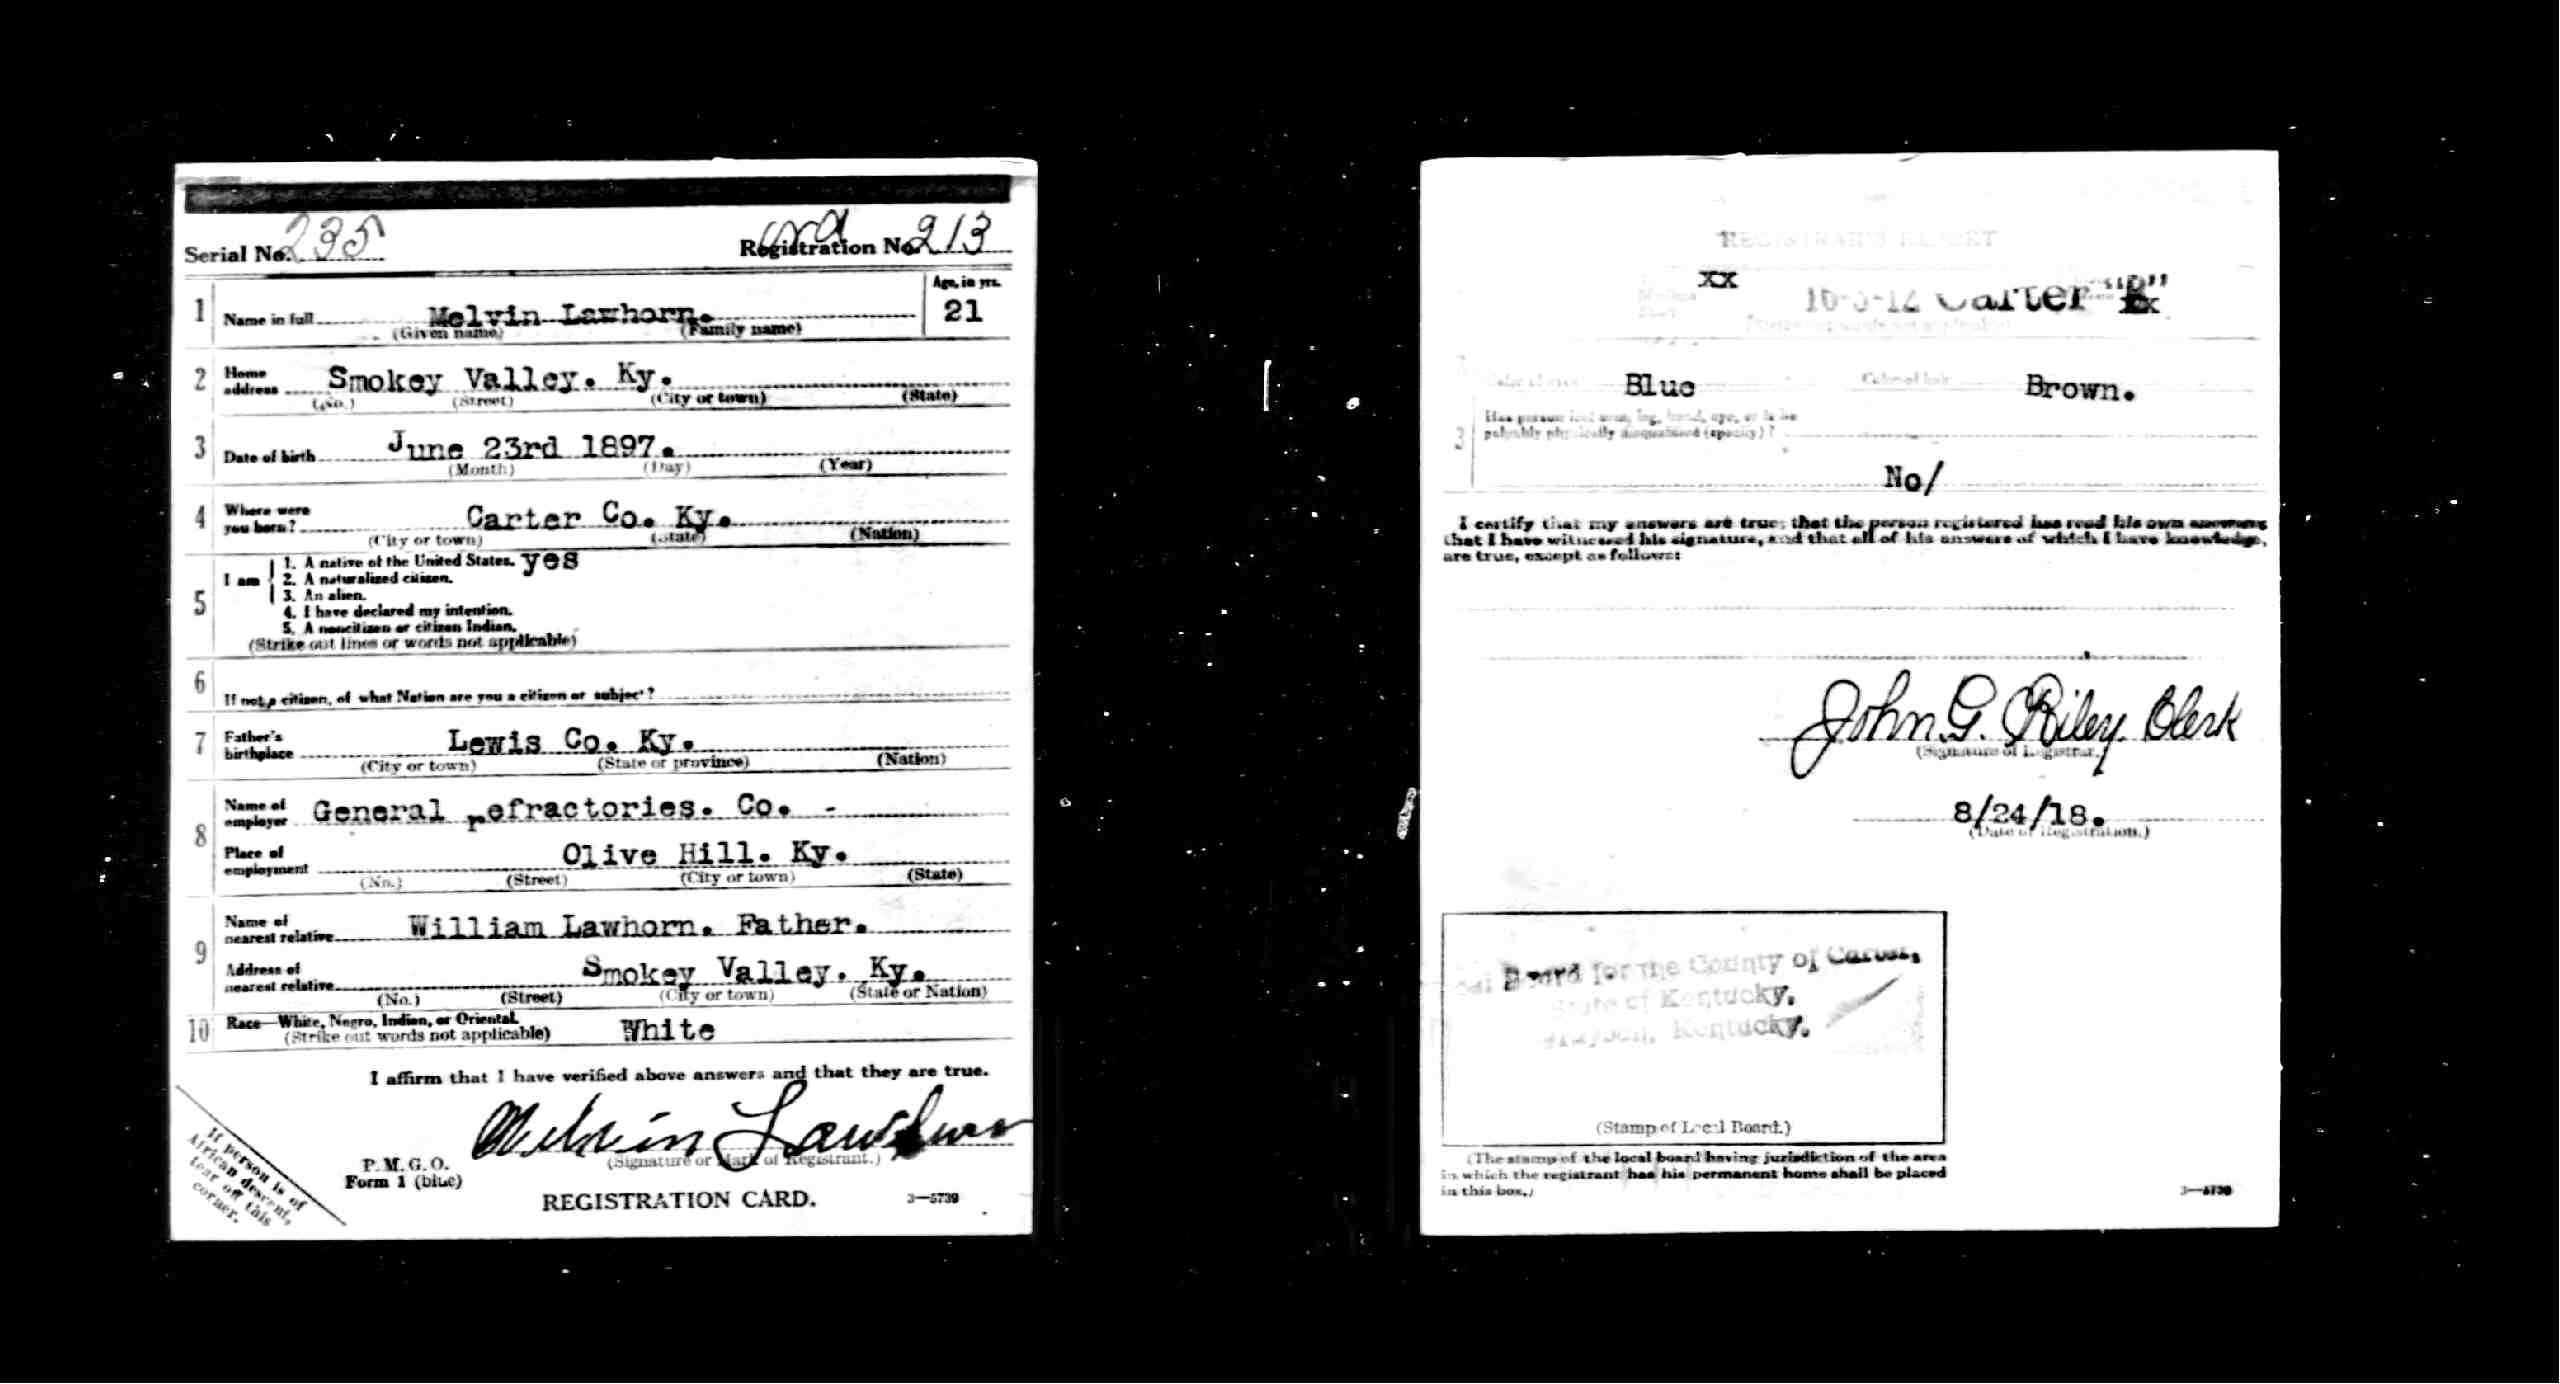 Serial No. 235 Registration No. 213
Age, in yrs.
1 Name in full Melvin Lawhorn. 21
(Given name) (Family name)
2 Home address Smokey Valley. Ky.
(No.) (Street) (City or town) (State)
3 Date of birth June 23rd 1897.
(Month) (Day) (Year)
4 Where were you born? Carter Co. Ky.
(City or town) (State) (Nation)
5 I am
1. A native of the United States. yes
2. A naturalized citizen.
3. An alien.
4. I have declared my intention.
5. A noncitizen or citizen Indian.
(Strike out lines or words not applicable)
6 If not a citizen, of what Nation are you a citizen or subject?
7 Father's birthplace Lewis Co. Ky.
(City or town) (State or province) (Nation)
8 Name of employer General Refractories. Co. -
Place of employment Olive Hill. Ky.
(No.) (Street) (City or town) (State)
9 Name of nearest relative William Lawhorn. Father.
Address of nearest relative Smokey Valley. Ky.
(No.) (Street) (City or town) (State or Nation)
10 Race—White, Negro, Indian, or Oriental. White
(Strike out words not applicable)
I affirm that I have verified above answers and that they are true.
Melvin Lawhorn
(Signature or Mark of Registrant.)
P. M. G. O.
Form 1 (blue)
REGISTRATION CARD. 3—5739
If person is of
African descent,
tear off this
corner.
REGISTRAR'S REPORT
xx
16-5-12 Carter "B"
xx
Color of eyes Blue Color of hair Brown.
3 Has person lost arm, leg, hand, eye, or is he
palpably physically disqualified (specify)?
No/
I certify that my answers are true; that the person registered has read his own answers
that I have witnessed his signature, and that all of his answers of which I have knowledge,
are true, except as follows:
John G. Riley Clerk
(Signature of Registrar.)
8/24/18.
(Date of Registration.)
Board for the County of Carter,
State of Kentucky,
Kentucky.
(Stamp of Local Board.)
(The stamp of the local board having jurisdiction of the area
in which the registrant has his permanent home shall be placed
in this box.)
3—5739